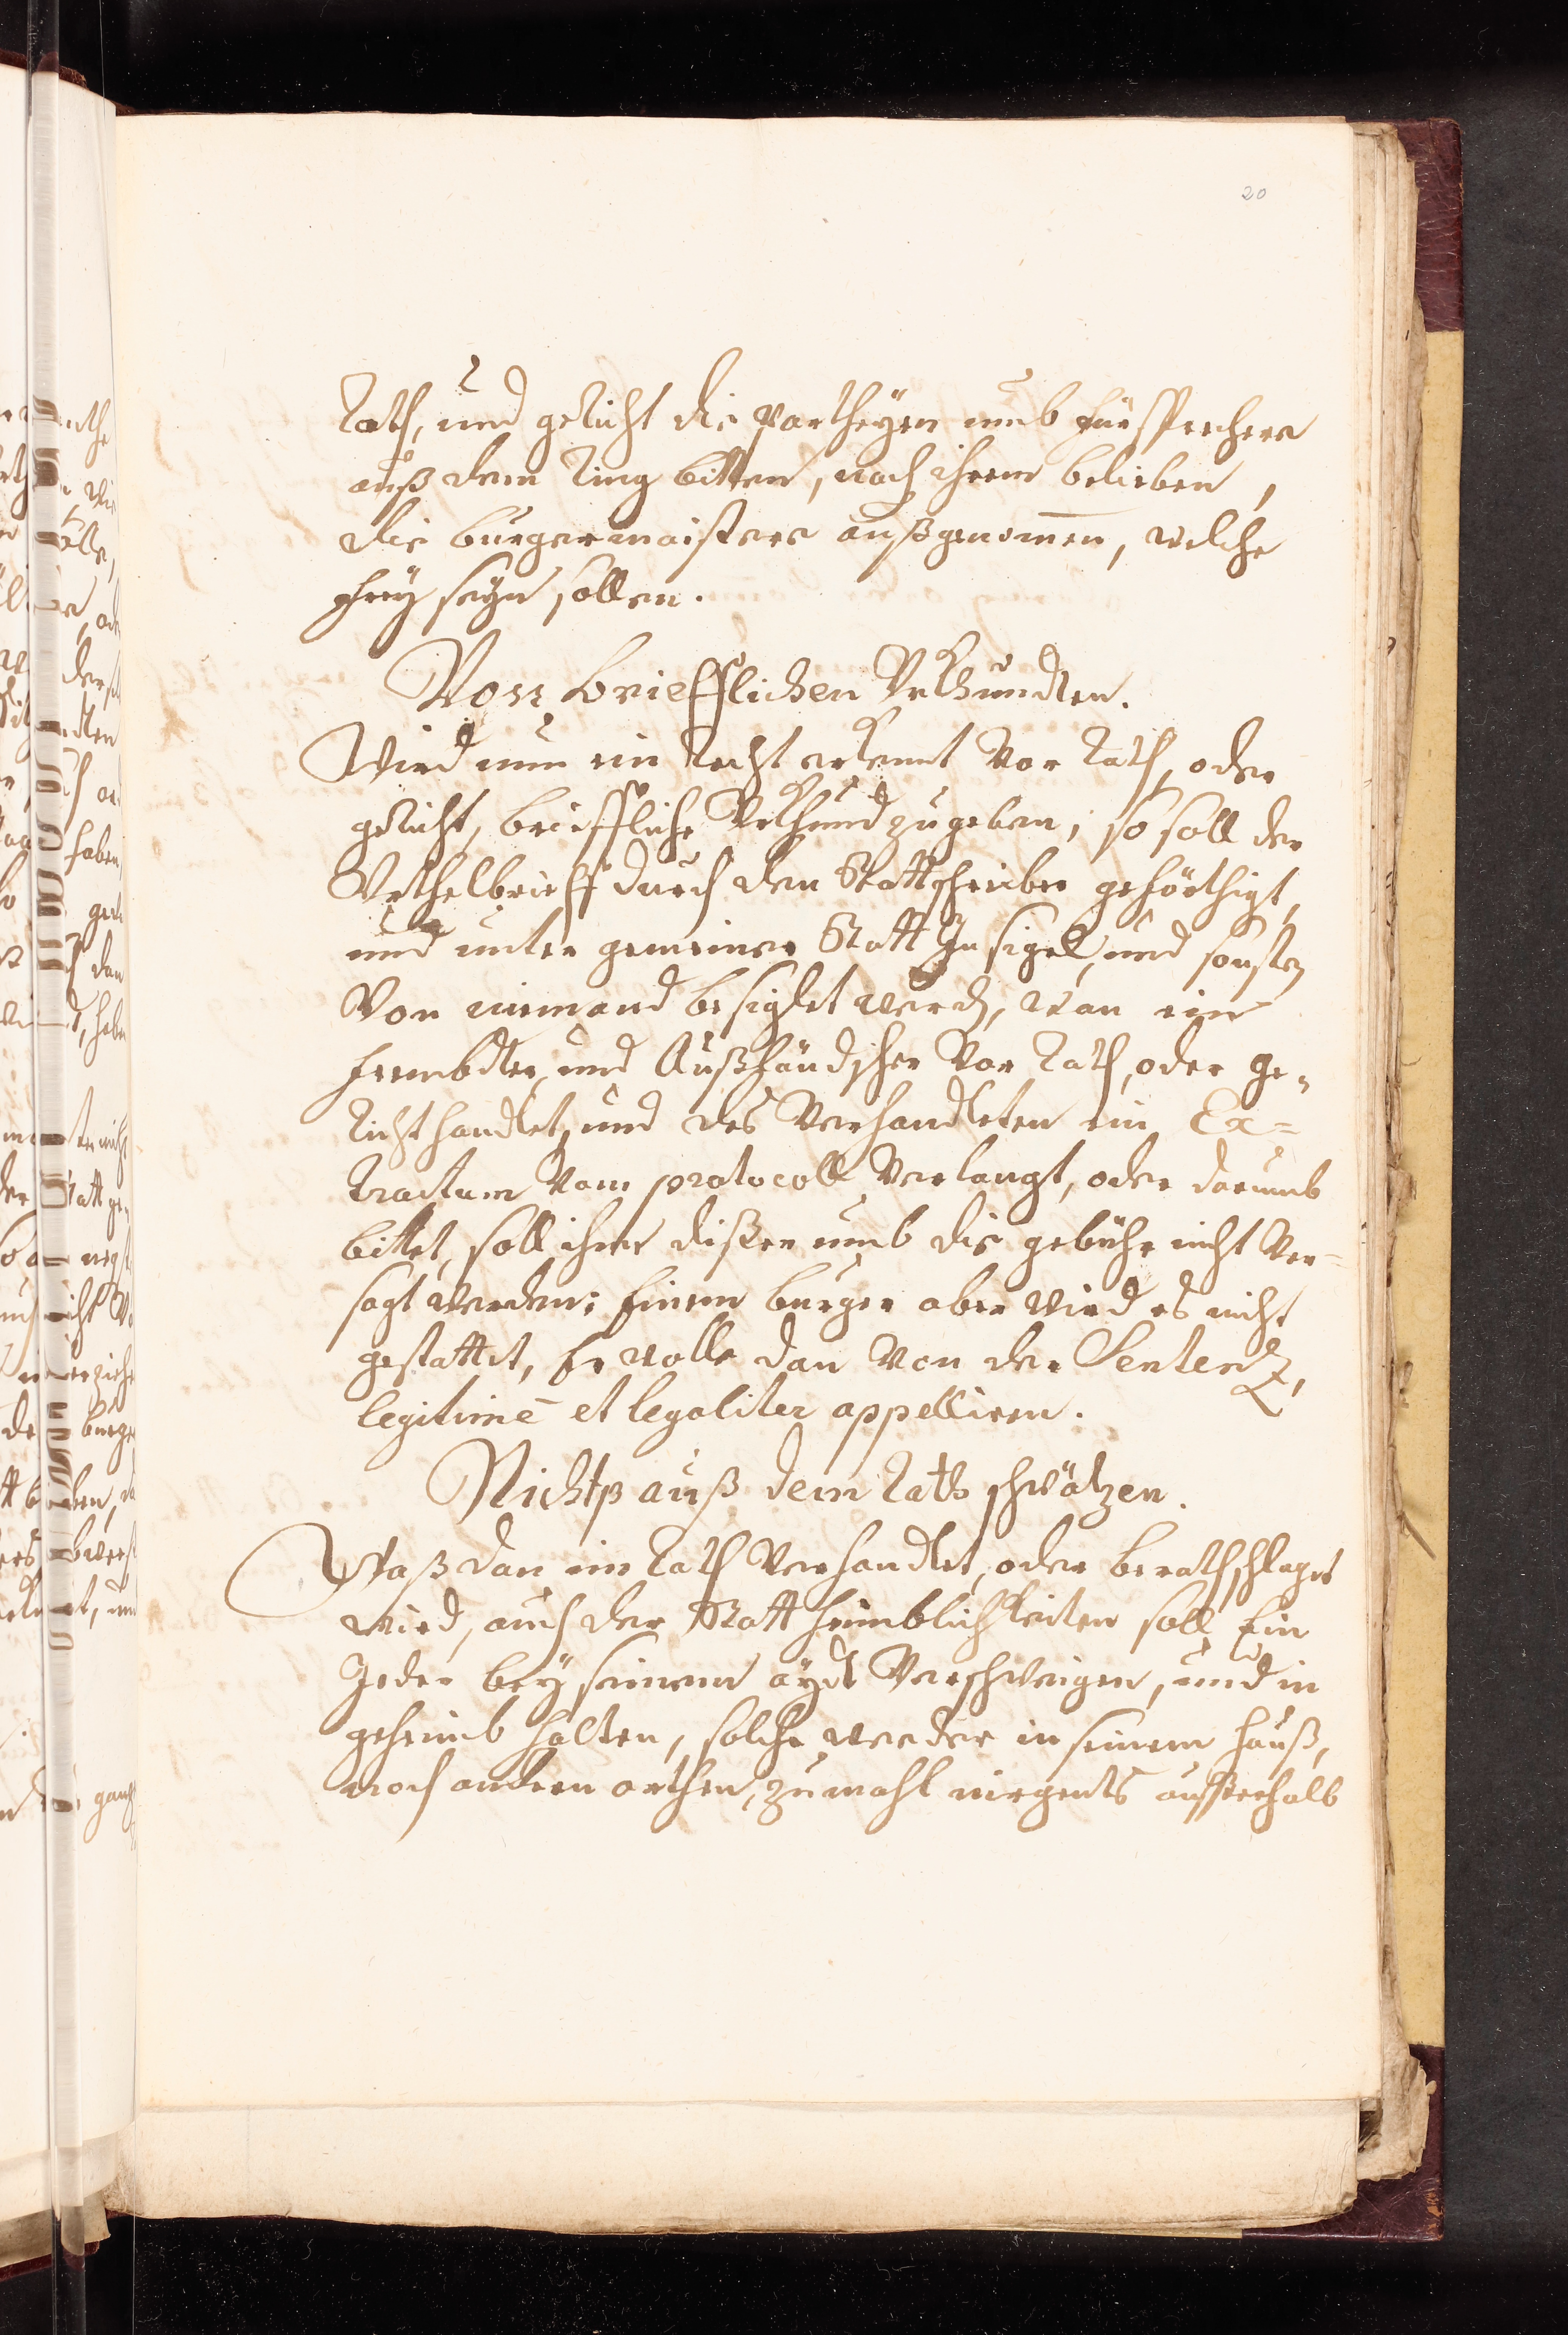 20
Rath, und gericht die partheyen umb fürsprechere
auß dem Ring bitten, nach ihrem belieben,
die burgermaistere außgenom̄en, welche
frey seyn sollen.
Von briefflichen Vrkhundten.
Wird nun ein Recht erkennt Vor Rath, oder
gericht, brieffliche Vrkhund zugeben, so soll der
Vrthelbrieff durch den Stattschreiber geförthigt,
und unter gemeiner Statt In sigel, und sonsten
Von niemand besiglet werden, wan ein
frembdter, und Außländscher Vor Rath, oder ge„
richt handlet, und des Verhandleten ein Ex=
tractum Vom protocoll Verlangt, oder darumb
bittet, soll ihme dißer umb die gebühr nicht Ver=
sagt werden; Einem burger aber wird es nicht
gestattet, Er wolle dan Von der Sentenz,
legitimè et legaliter appelliren.
Nichtß auß dem Rath schwätzen.
Waß dan im Rath Verhandlet, oder berathschlaget
wird, auch der Statt heimblichkeiten soll Ein
Jeder bey seinem aydt Verschweigen, und in
geheimb halten, solche weeder in seinem hauß,
noch andern orthen, zumahl nirgents ausserhalb